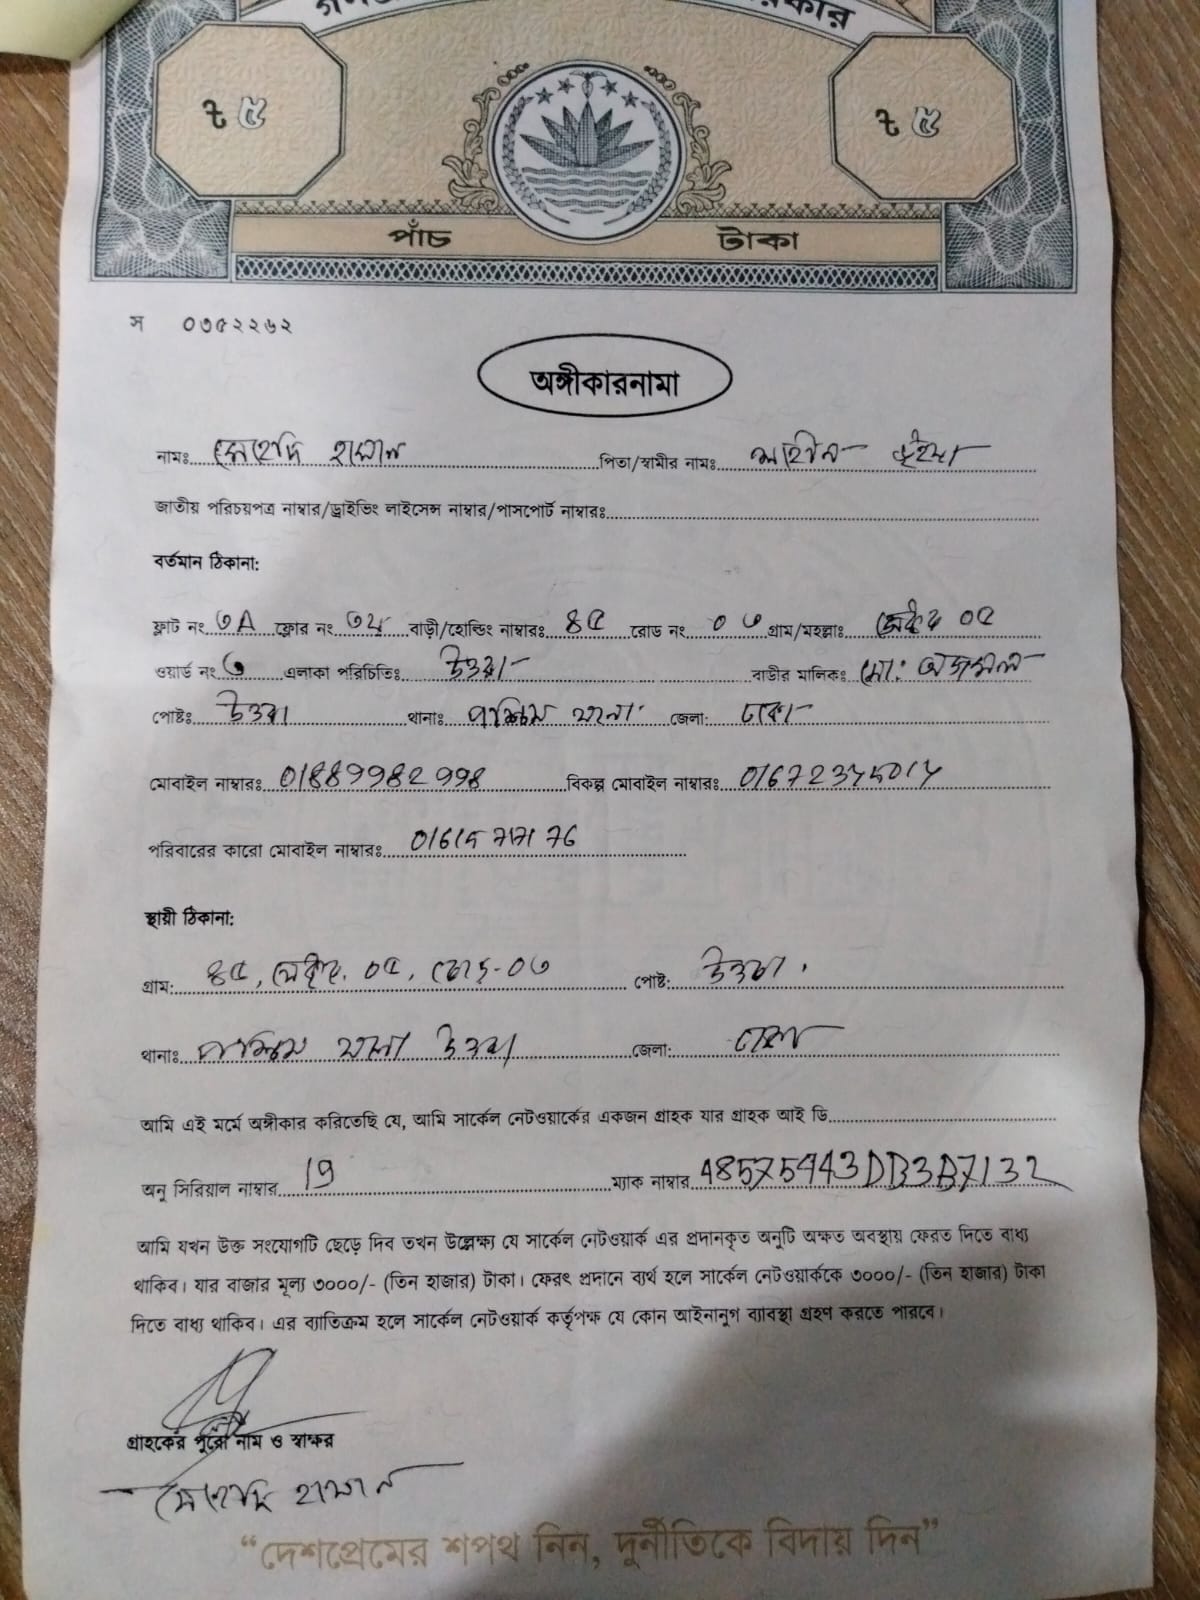 ৳ ৫ ৳ ৫
পাঁচ টাকা
স ০৩৫২২৬২
অঙ্গীকারনামা
নামঃ মেহেদি হাসান পিতা/স্বামীর নামঃ শাহীন ভূইয়া
জাতীয় পরিচয়পত্র নাম্বার/ড্রাইভিং লাইসেন্স নাম্বার/পাসপোর্ট নাম্বারঃ
বর্তমান ঠিকানা:
ফ্লাট নং ৩A ফ্লোর নং ৩য় বাড়ী/হোল্ডিং নাম্বারঃ ৪৫ রোড নং ০৩ গ্রাম/মহল্লাঃ সেক্টর ০৫
ওয়ার্ড নং ৩ এলাকা পরিচিতিঃ উত্তরা বাড়ীর মালিকঃ মো:
পোষ্টঃ উত্তরা থানাঃ পশ্চিম থানা জেলা: ঢাকা
মোবাইল নাম্বারঃ 01889982998 বিকল্প মোবাইল নাম্বারঃ
পরিবারের কারো মোবাইল নাম্বারঃ
স্থায়ী ঠিকানা:
গ্রাম: ৪৫, সেক্টর. ০৫, রোড-০৩ পোষ্ট: উত্তরা.
থানাঃ পশ্চিম থানা উত্তরা জেলা: ঢাকা
আমি এই মর্মে অঙ্গীকার করিতেছি যে, আমি সার্কেল নেটওয়ার্কের একজন গ্রাহক যার গ্রাহক আই ডি
অনু সিরিয়াল নাম্বার 19 ম্যাক নাম্বার 48575443DB3B7132
আমি যখন উক্ত সংযোগটি ছেড়ে দিব তখন উল্লেক্ষ্য যে সার্কেল নেটওয়ার্ক এর প্রদানকৃত অনুটি অক্ষত অবস্থায় ফেরত দিতে বাধ্য
থাকিব। যার বাজার মূল্য ৩০০০/- (তিন হাজার) টাকা। ফেরৎ প্রদানে ব্যর্থ হলে সার্কেল নেটওয়ার্ককে ৩০০০/- (তিন হাজার) টাকা
দিতে বাধ্য থাকিব। এর ব্যাতিক্রম হলে সার্কেল নেটওয়ার্ক কর্তৃপক্ষ যে কোন আইনানুগ ব্যাবস্থা গ্রহণ করতে পারবে।
গ্রাহকের পুরো নাম ও স্বাক্ষর
মেহেদি হাসান
“দেশপ্রেমের শপথ নিন, দুর্নীতিকে বিদায় দিন”